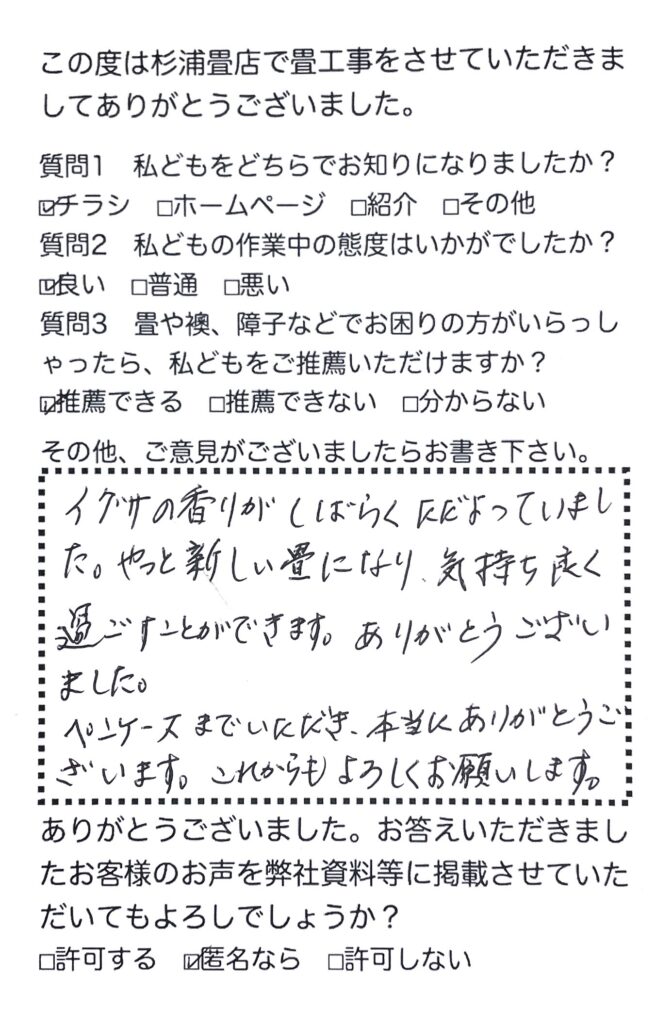 この度は杉浦畳店で畳工事をさせていただきま
してありがとうございました。
質問1　私どもをどちらでお知りになりましたか？
☑チラシ　□ホームページ　□紹介　□その他
質問2　私どもの作業中の態度はいかがでしたか？
☑良い　□普通　□悪い
質問3　畳や襖、障子などでお困りの方がいらっし
ゃったら、私どもをご推薦いただけますか？
☑推薦できる　□推薦できない　□分からない
その他、ご意見がございましたらお書き下さい。
イグサの香りがしばらくただよっていまし
た。やっと新しい畳になり、気持ち良く
過ごすことができます。ありがとうござい
ました。
ペンケースまでいただき、本当にありがとうご
ざいます。これからもよろしくお願いします。
ありがとうございました。お答えいただきまし
たお客様のお声を弊社資料等に掲載させていた
だいてもよろしでしょうか？
□許可する　☑匿名なら　□許可しない